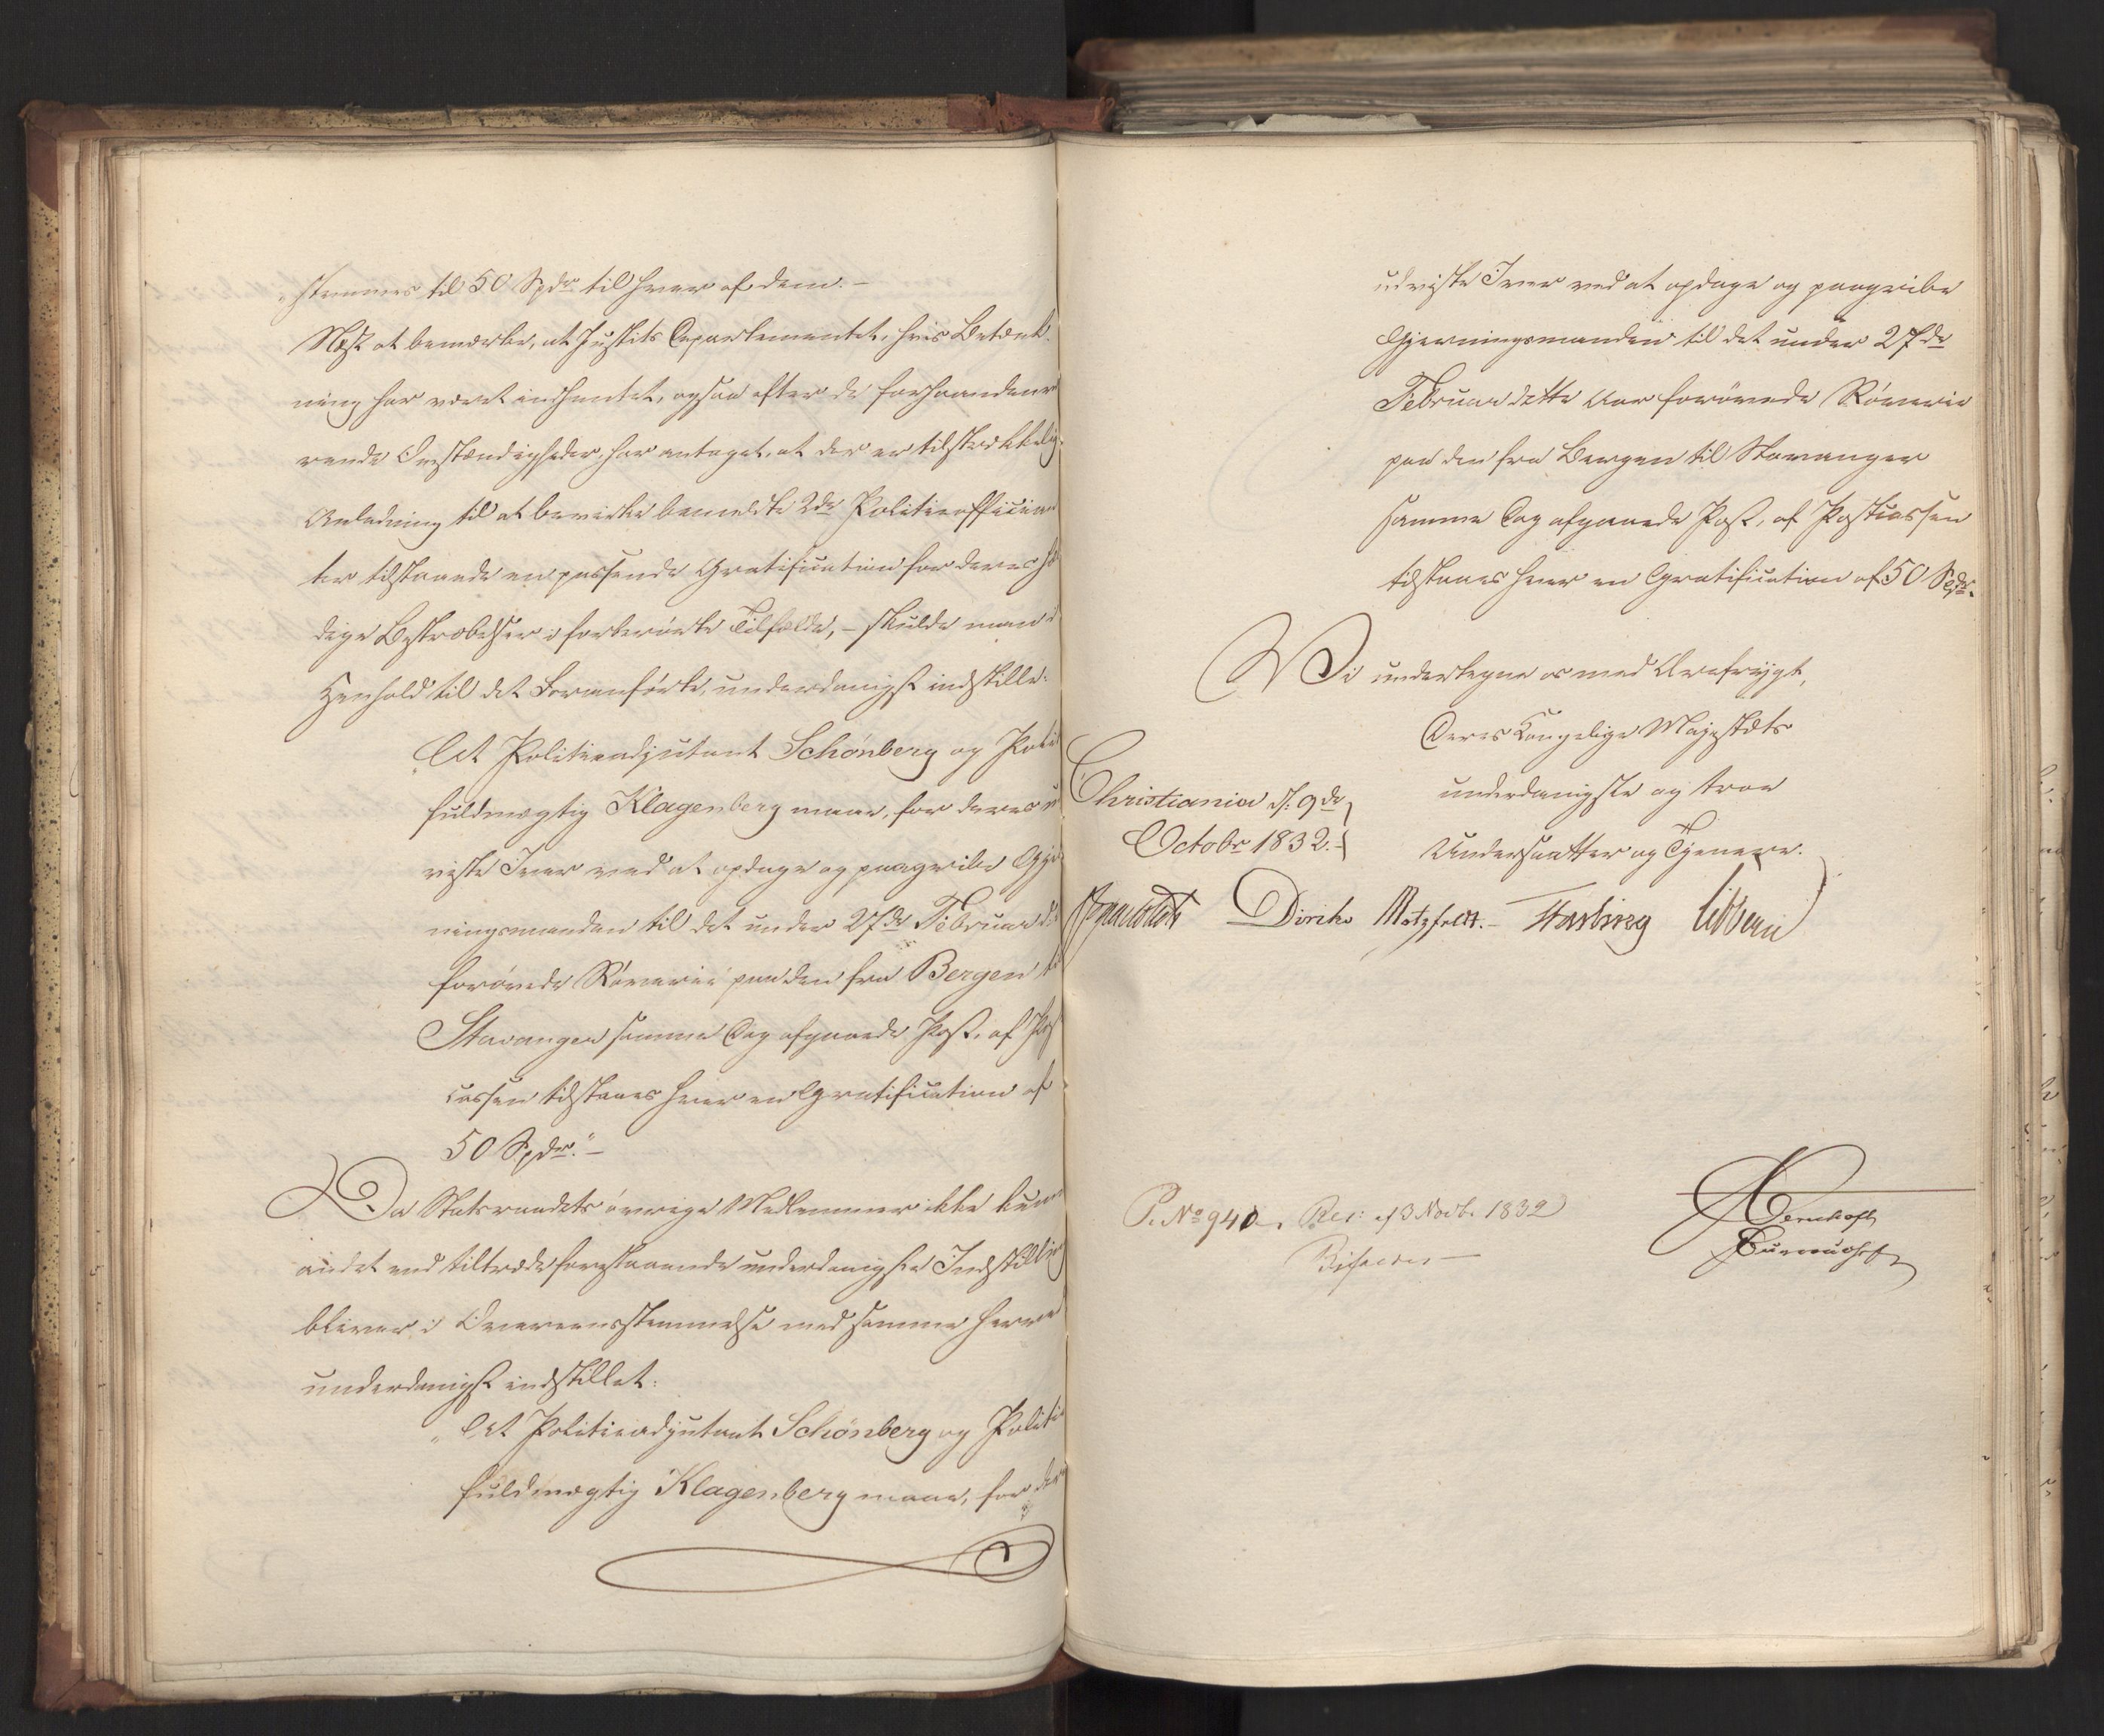 stemmes til 50 Spdr til hver af dem. –
Næst at bemærke, at Justits Departementet, hvis Betænk-
ning har været indhentet, ogsaa efter de forhaanden væ-
rende Omstændigheder, har antaget, at der er tilstrækkelig
Anledning til at bevirke bemeldte 2de Politieoffician-
ter tilstaaede en passende Gratification for deres
dige Bestræbelser i forberørte Tilfælde, – skulde man i
Henhold til det Foranførte, underdanigst indstille:
At Politieadjutant Schönberg og Politi
fuldmægtig Klagenberg maae, for deres ud
viste Iver ved at opdage og paagribe Gjer
ningsmanden til det under 27de Februar d.
forøvede Röverie paa den fra Bergen til
Stavanger samme Dag afgaaede Post, af Post
cassen tilstaaes hver en Gratification af
50 Spdr." –
Da Statsraadets øvrige Medlemmer ikke kunne
andet end tiltræde foranstaaende underdanigste Indstilling
bliver i Overeensstemmelse med samme herved
underdanigst indstillet:
"At Politieadjutant Schönberg og Politi
fuldmægtig Klagenberg maae, for deres
udviste Iver ved at opdage og paagribe
Gjerningsmanden til det under 27de
Februar dette Aar forøvede Röverie
paa den fra Bergen til Stavanger
samme Dag afgaaede Post, af Postcassen
tilstaaes hver en Gratification af 50 Spdr.
Vi undertegne os med Ærefrygt,
Deres Kongelige Majestæts
underdanigste og troe
Undersaatter og Tjenere.
Christiania d. 9de
Octobr 1832. –
Diriks Motzfeldt. – Fasting Vibbein
P. No 940. Res: af 3 Novb. 1832
Bifaldes –